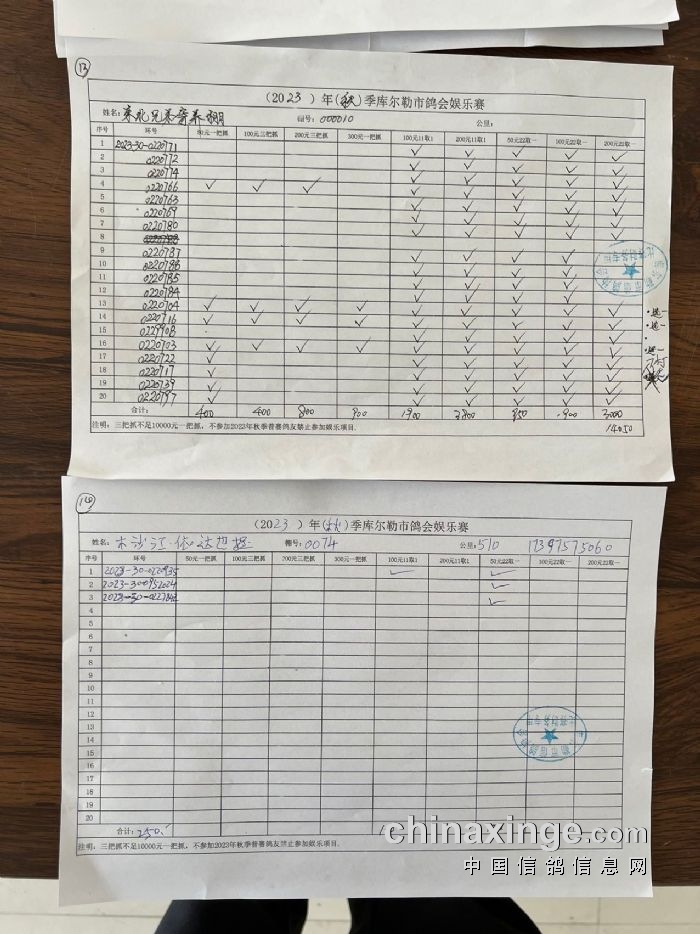 13
(2023)年(秋)季库尔勒市鸽会娱乐赛
姓名: 兄弟寄养棚 棚号: 000010 公里:
序号 环号 50元一把抓 100元三把抓 200元三把抓 300元一把抓 100元11取1 200元11取1 50元22取一 100元22取一 200元22取一
1 2023-30-0220771 ✓ ✓ ✓ ✓ ✓
2 0220772 ✓ ✓ ✓ ✓ ✓
3 0220774 ✓ ✓ ✓ ✓ ✓
4 0220766 ✓ ✓ ✓ ✓ ✓ ✓ ✓ ✓
5 0220763 ✓ ✓ ✓ ✓ ✓
6 0220769 ✓ ✓ ✓ ✓ ✓
7 0220780 ✓ ✓ ✓ ✓ ✓
8
9 0220787 ✓ ✓ ✓ ✓
10 0220788 ✓ ✓ ✓ ✓
11 0220785 ✓ ✓ ✓ ✓
12 0220784 ✓ ✓ ✓ ✓
13 0220704 ✓ ✓ ✓ ✓ ✓ ✓ ✓ ✓ ✓
14 0220716 ✓ ✓ ✓ ✓ ✓ ✓ ✓ ✓ ✓
15 0229908 ✓ ✓ ✓ ✓ ✓ ✓
16 0220703 ✓ ✓ ✓ ✓ ✓ ✓ ✓ ✓ ✓
17 0220722 ✓ ✓ ✓ ✓ ✓ ✓
18 0220717 ✓ ✓ ✓ ✓ ✓ ✓
19 0220739 ✓ ✓ ✓ ✓ ✓ ✓
20 0220797 ✓ ✓ ✓ ✓ ✓ ✓
合计: 400 400 800 900 1900 3800 950 1900 3000
14050
注明:三把抓不足10000元一把抓,不参加2023年秋季普赛鸽友禁止参加娱乐项目.
14
(2023)年(秋)季库尔勒市鸽会娱乐赛
姓名: 木沙江·依达也提 棚号: 0074 公里: 510 17397575060
序号 环号 50元一把抓 100元三把抓 200元三把抓 300元一把抓 100元11取1 200元11取1 50元22取一 100元22取一 200元22取一
1 2023-30-0220935 ✓ ✓
2 2023-30-0952024 ✓
3 2023-30-0227842 ✓
4
5
6
7
8
9
10
11
12
13
14
15
16
17
18
19
20
合计: 250.
注明:三把抓不足10000元一把抓,不参加2023年秋季普赛鸽友禁止参加娱乐项目.
chinaxinge.com
中国信鸽信息网